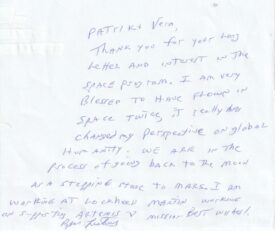 Thank you for your long
letter and interest in the
space program. I am very
Blessed to have flown in
space twice, it really has
changed my perspective on global
Humanity. We are in the
process of going back to the moon
as a stepping stone to Mars. I am
working at Lockheed Martin working
on supporting Artemis V mission. Best wishes,